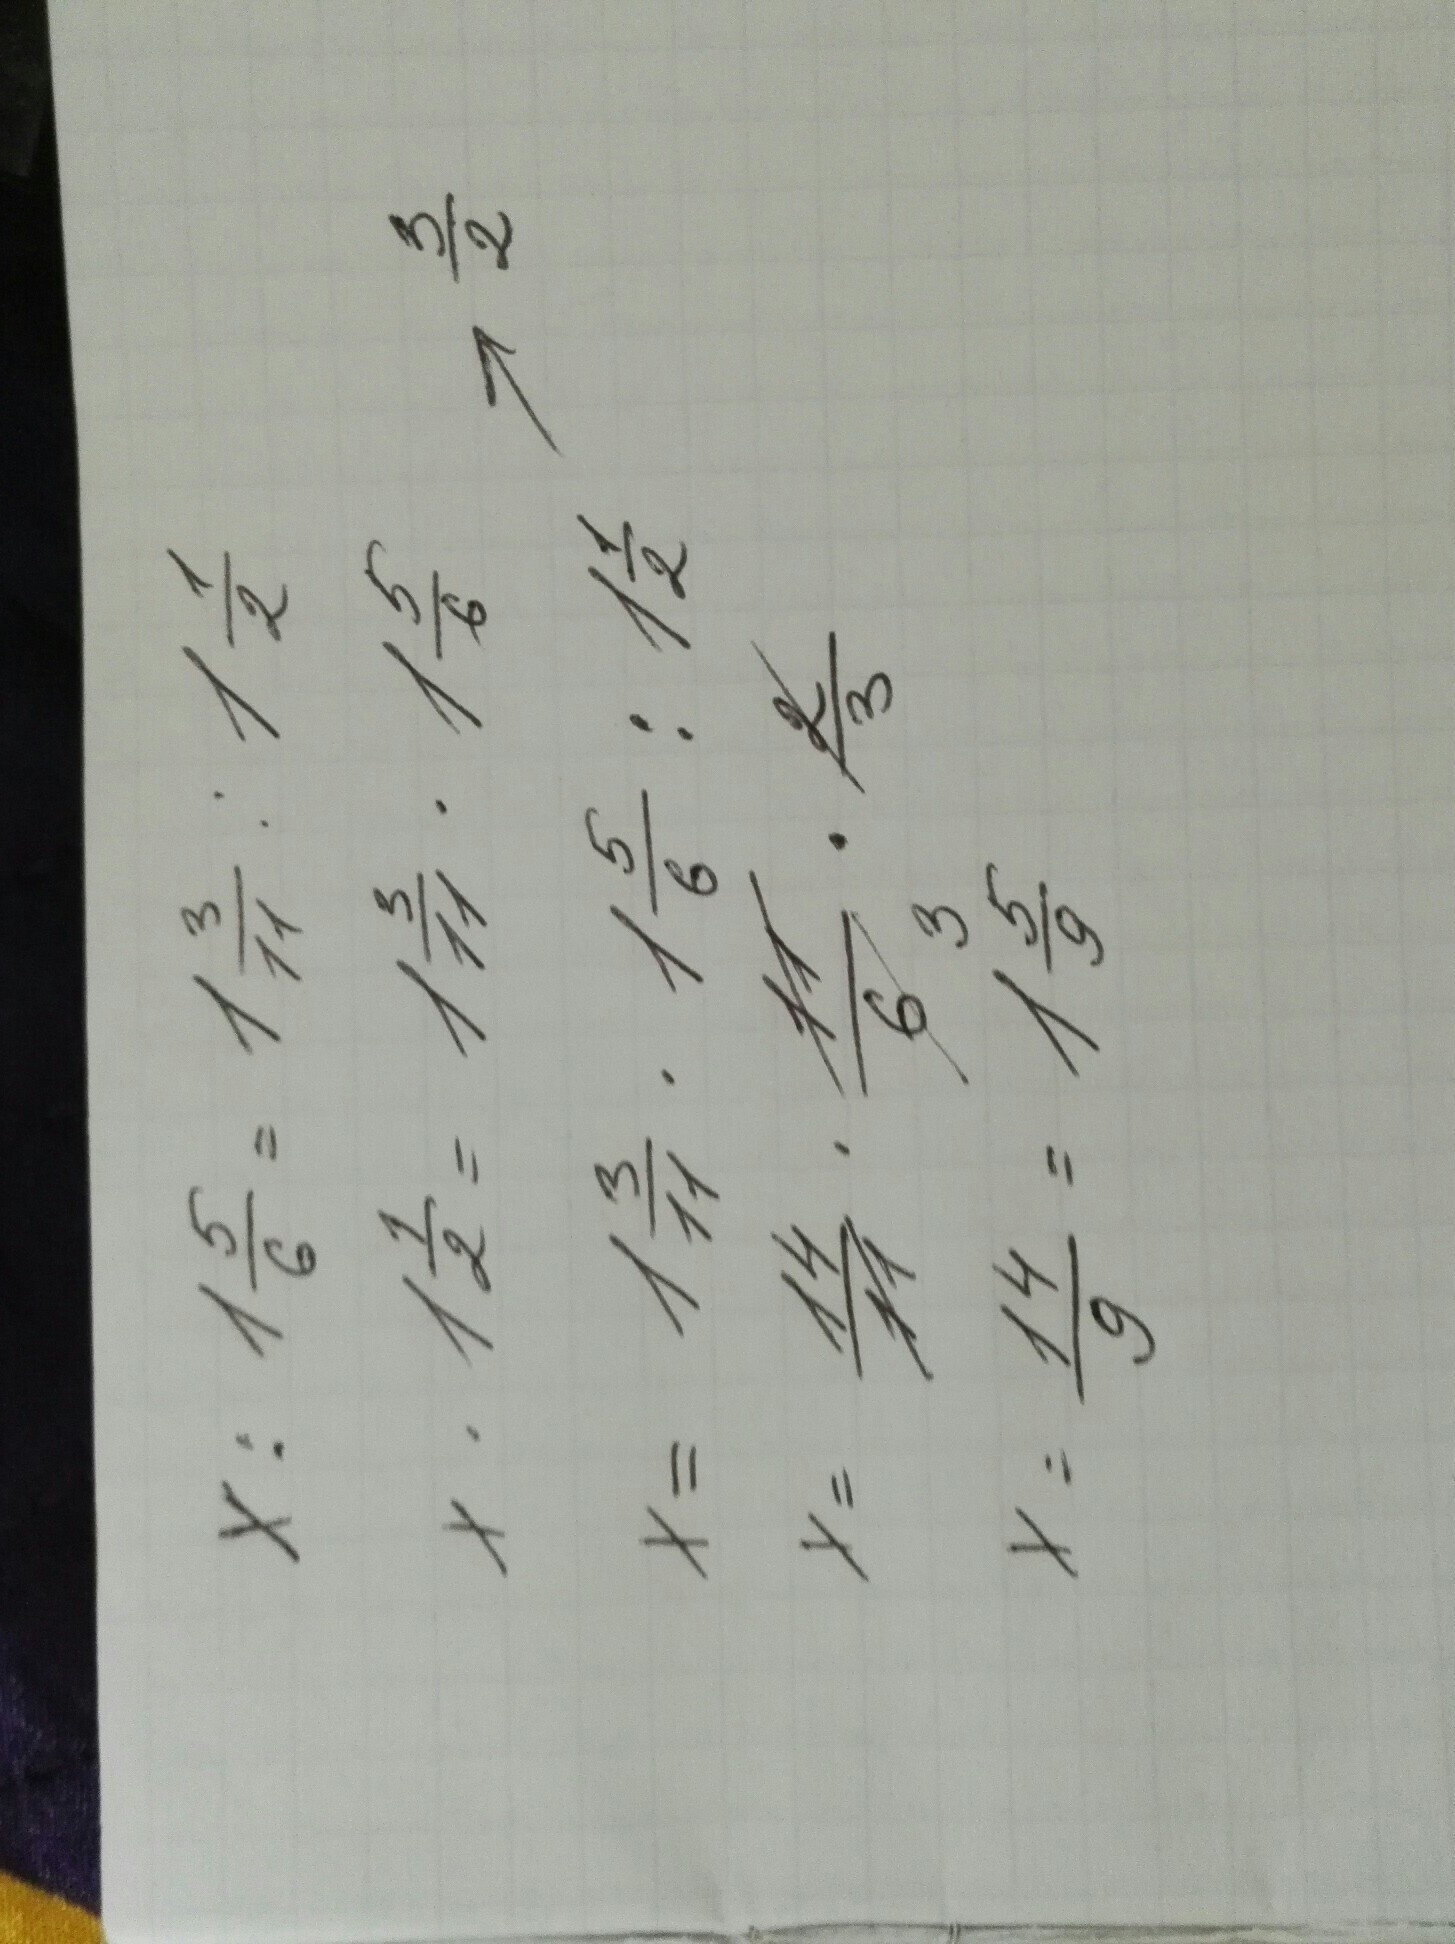 x : 1 5/6 = 1 3/11 : 1 1/2
x · 1 1/2 = 1 3/11 · 1 5/6
x = 1 3/11 · 1 5/6 : 1 1/2 → 3/2
x = 14/11 · 11/6 · 2/3
3
x = 14/9 = 1 5/9